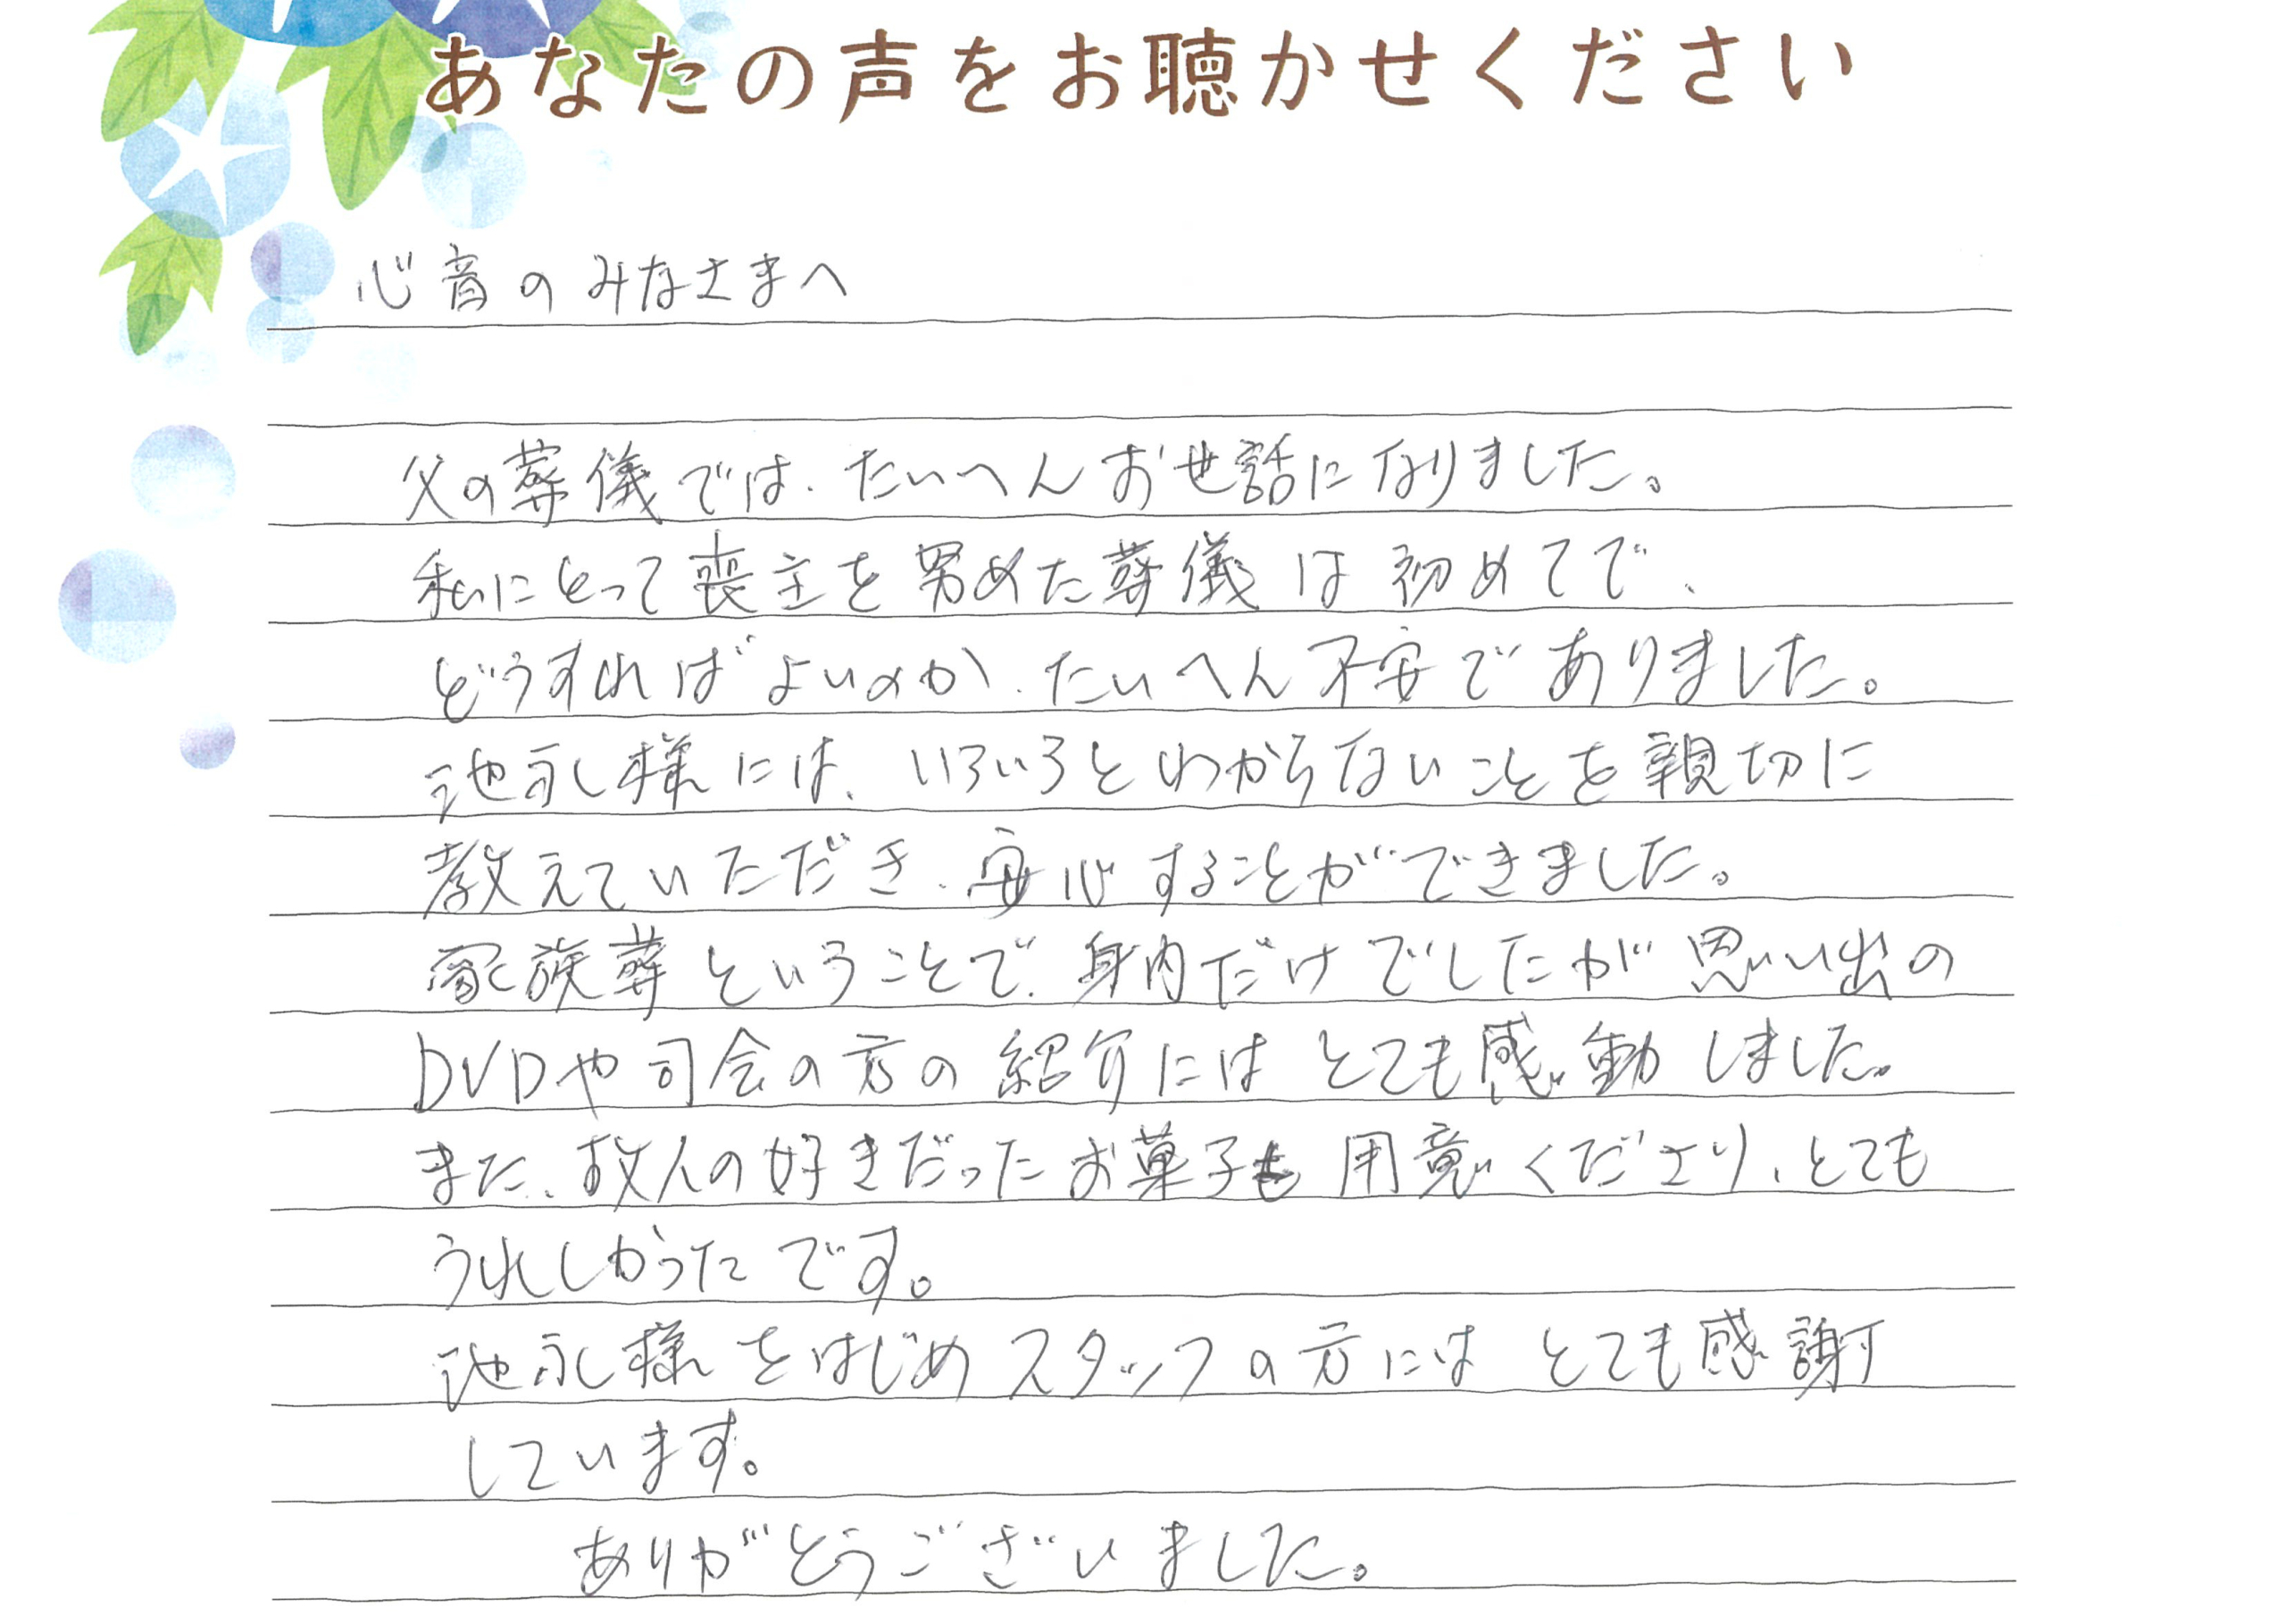 あなたの声をお聴かせください
心音のみなさまへ
父の葬儀では、たいへんお世話になりました。
私にとって喪主を努めた葬儀は初めてで、
どうすればよいのか、たいへん不安でありました。
池永様には、いろいろとわからないことを親切に
教えていただき、安心することができました。
家族葬ということで、身内だけでしたが思い出の
DVDや司会の方の紹介にはとても感動しました。
また、故人の好きだったお菓子も用意くださり、とても
うれしかったです。
池永様をはじめスタッフの方にはとても感謝
しています。
ありがとうございました。